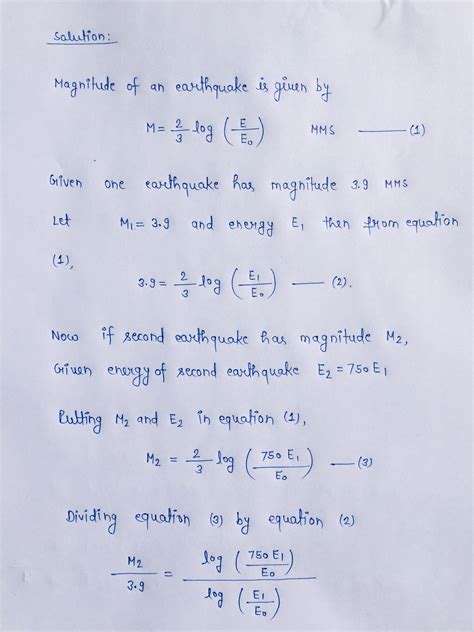 Solution:
Magnitude of an earthquake is given by
M = 2/3 log (E/E₀) MMS —— (1)
Given one earthquake has magnitude 3.9 MMS
Let M₁ = 3.9 and energy E₁ then from equation
(1),
3.9 = 2/3 log (E₁/E₀) —— (2).
Now if second earthquake has magnitude M₂,
Given energy of second earthquake E₂ = 750 E₁
Putting M₂ and E₂ in equation (1),
M₂ = 2/3 log (750 E₁/E₀) —— (3)
Dividing equation (3) by equation (2)
M₂/3.9 = log (750 E₁/E₀) / log (E₁/E₀)